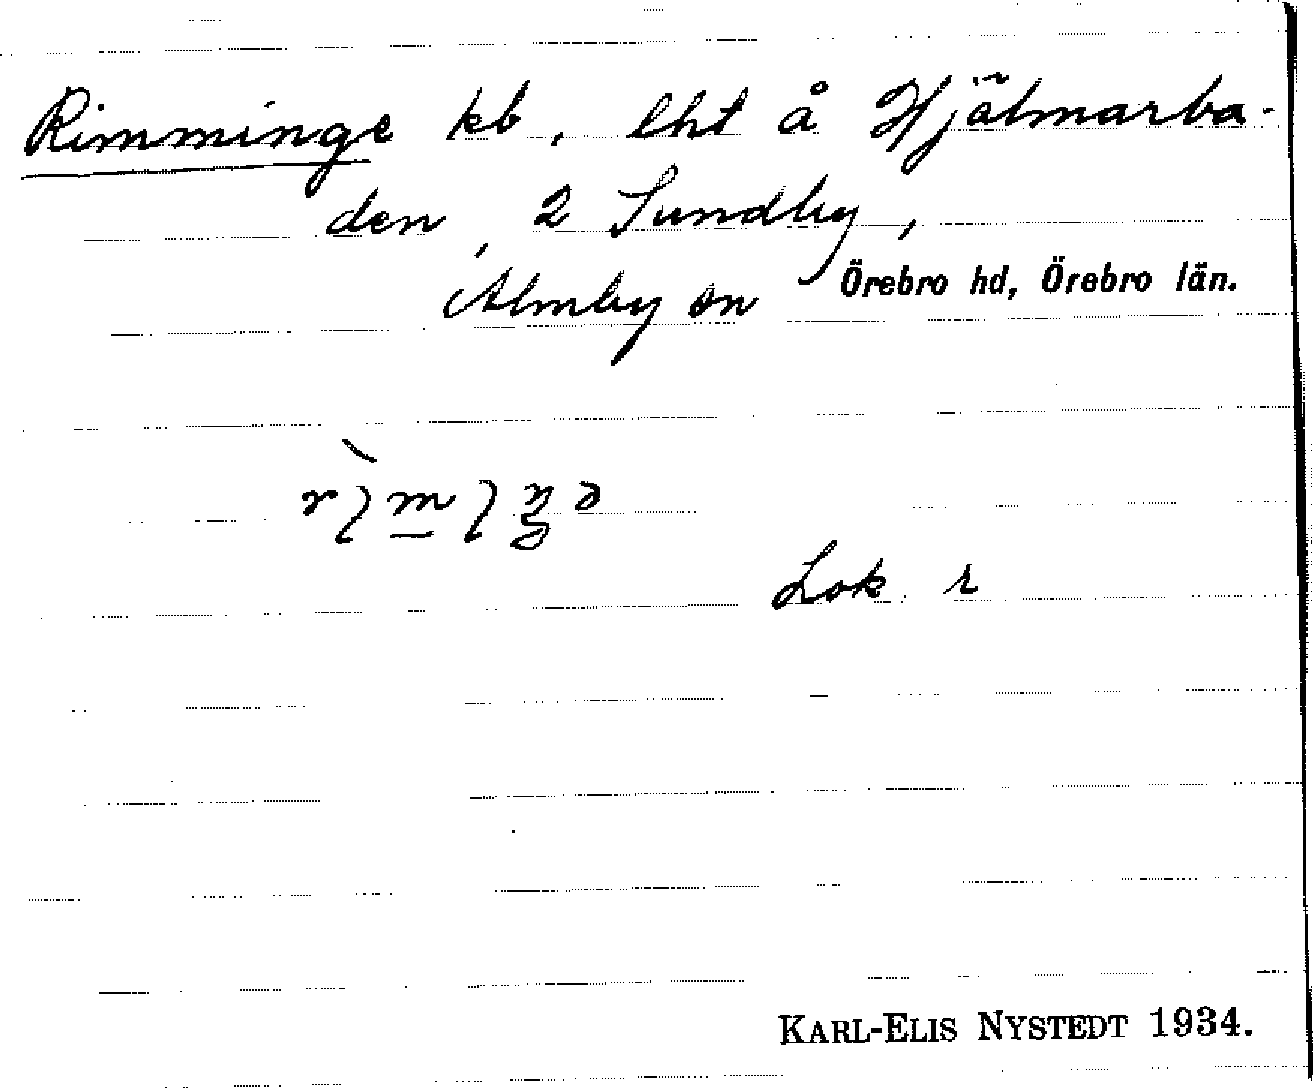 Rimminge kb, lht å Hjälmarba-
den, 2 Sundby,
Almby sn Örebro hd, Örebro län.
Lok. r
KARL-ELIS NYSTEDT 1934.